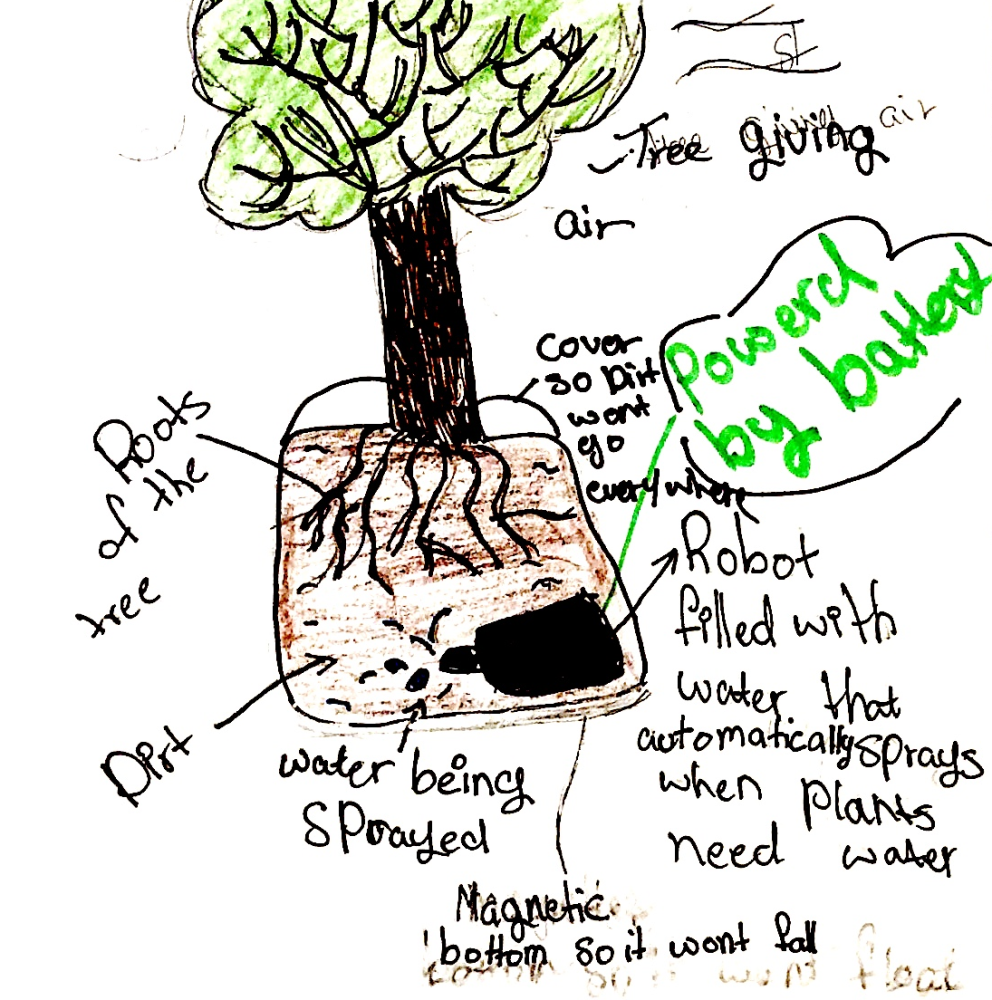 St
Tree giving air
air
Powerd
by battery
cover
so Dirt
wont
go
everywhere
Roots
of the
tree
Robot
filled with
water that
automatically sprays
when plants
need water
Dirt
water being
sprayed
Magnetic
bottom so it wont fall
bottom so it wont float